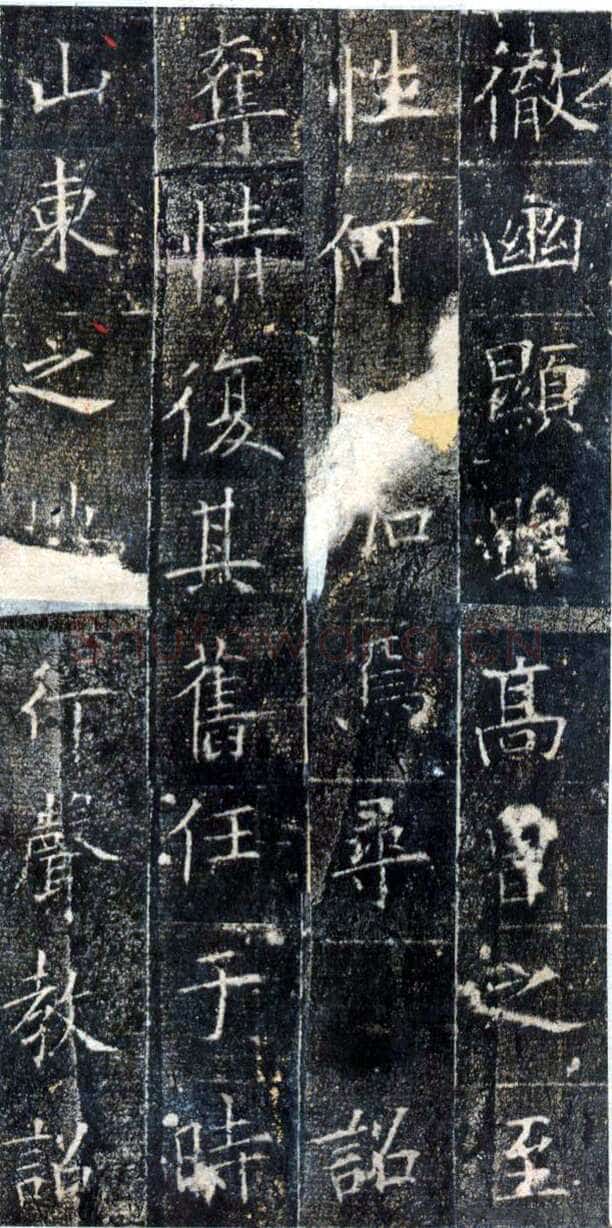 徹幽顯舉高曾之至
性何 石焉尋 詔
奪情復其舊任于時
山東之地 行聲教詔
shufawang.cn